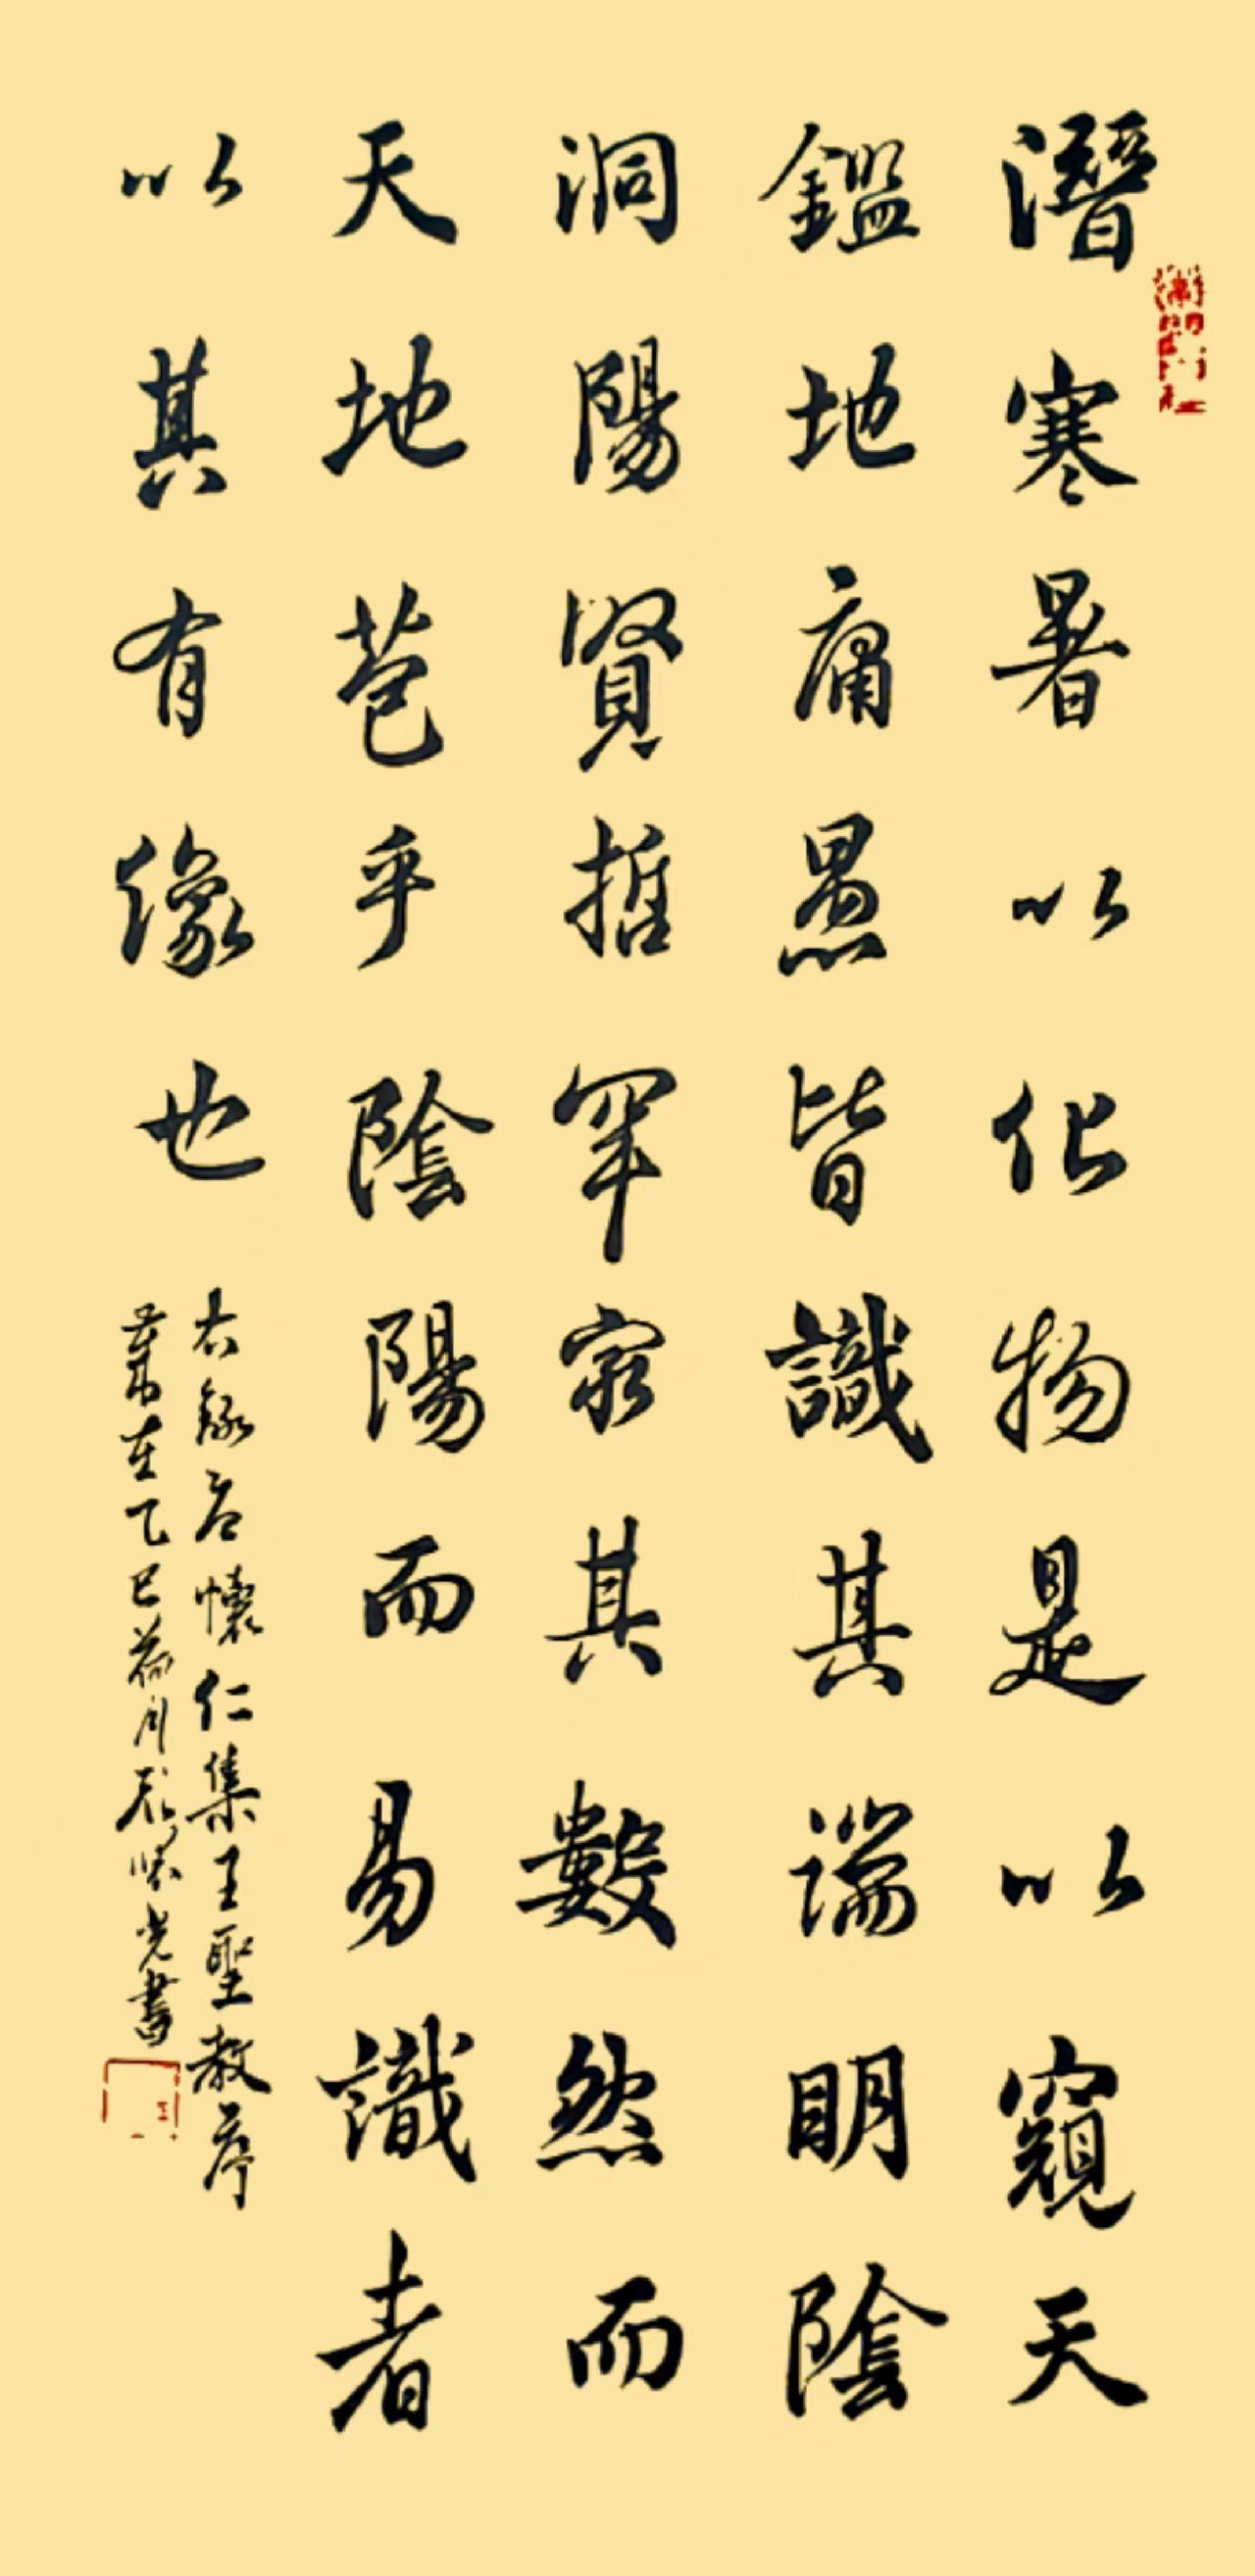 潛寒暑以化物是以窺天
鑑地庸愚皆識其端明陰
洞陽賢哲罕窮其數然而
天地苞乎陰陽而易識者
以其有像也
右錄唐懷仁集王聖教序
歲在乙巳荷月 光書